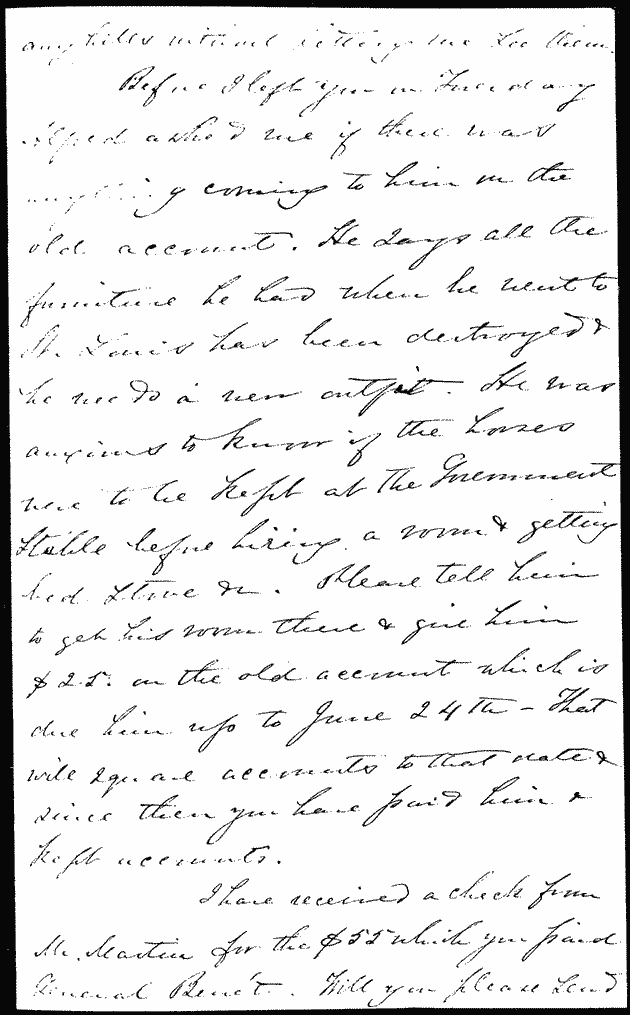 any bills without letting me see them.
Before I left you on Tuesday
Alfred asked me if there was
anything coming to him on the
old account. He says all the
furniture he had when he went to
St. Louis has been destroyed &
he needs a new outfit. He was
anxious to know if the horses
were to be kept at the Government
Stable before hiring a room & getting
bed stove &c. Please tell him
to get his room there & give him
$25. on the old account which is
due him up to June 24th - That
will square accounts to that date &
since then you have paid him &
kept accounts.
I have received a check from
Mr. Martin for the $55 which you paid
General Benét. Will you please send